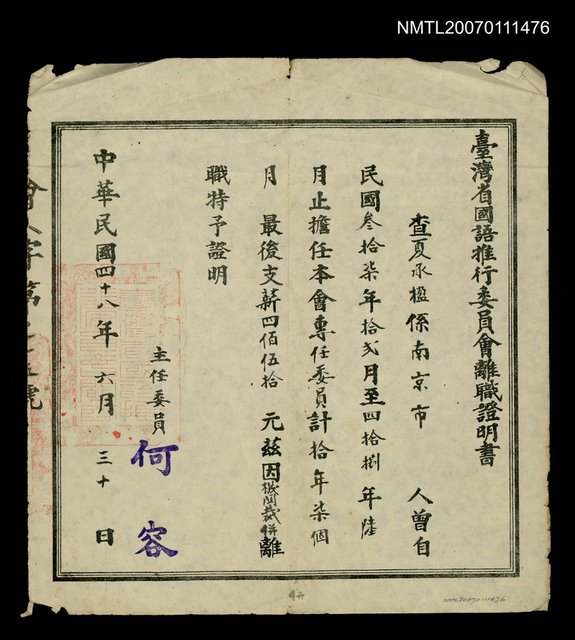 NMTL20070111476
臺灣省國語推行委員會離職證明書
查夏承楹係南京市 人曾自
民國叁拾柒年拾弍月至四拾捌年陸
月止擔任本會專任委員計拾年柒個
月 最後支薪四佰伍拾元茲因機關裁併離
職特予證明
主任委員 何容
中華民國四十八年六月三十日
NMTL20070111476